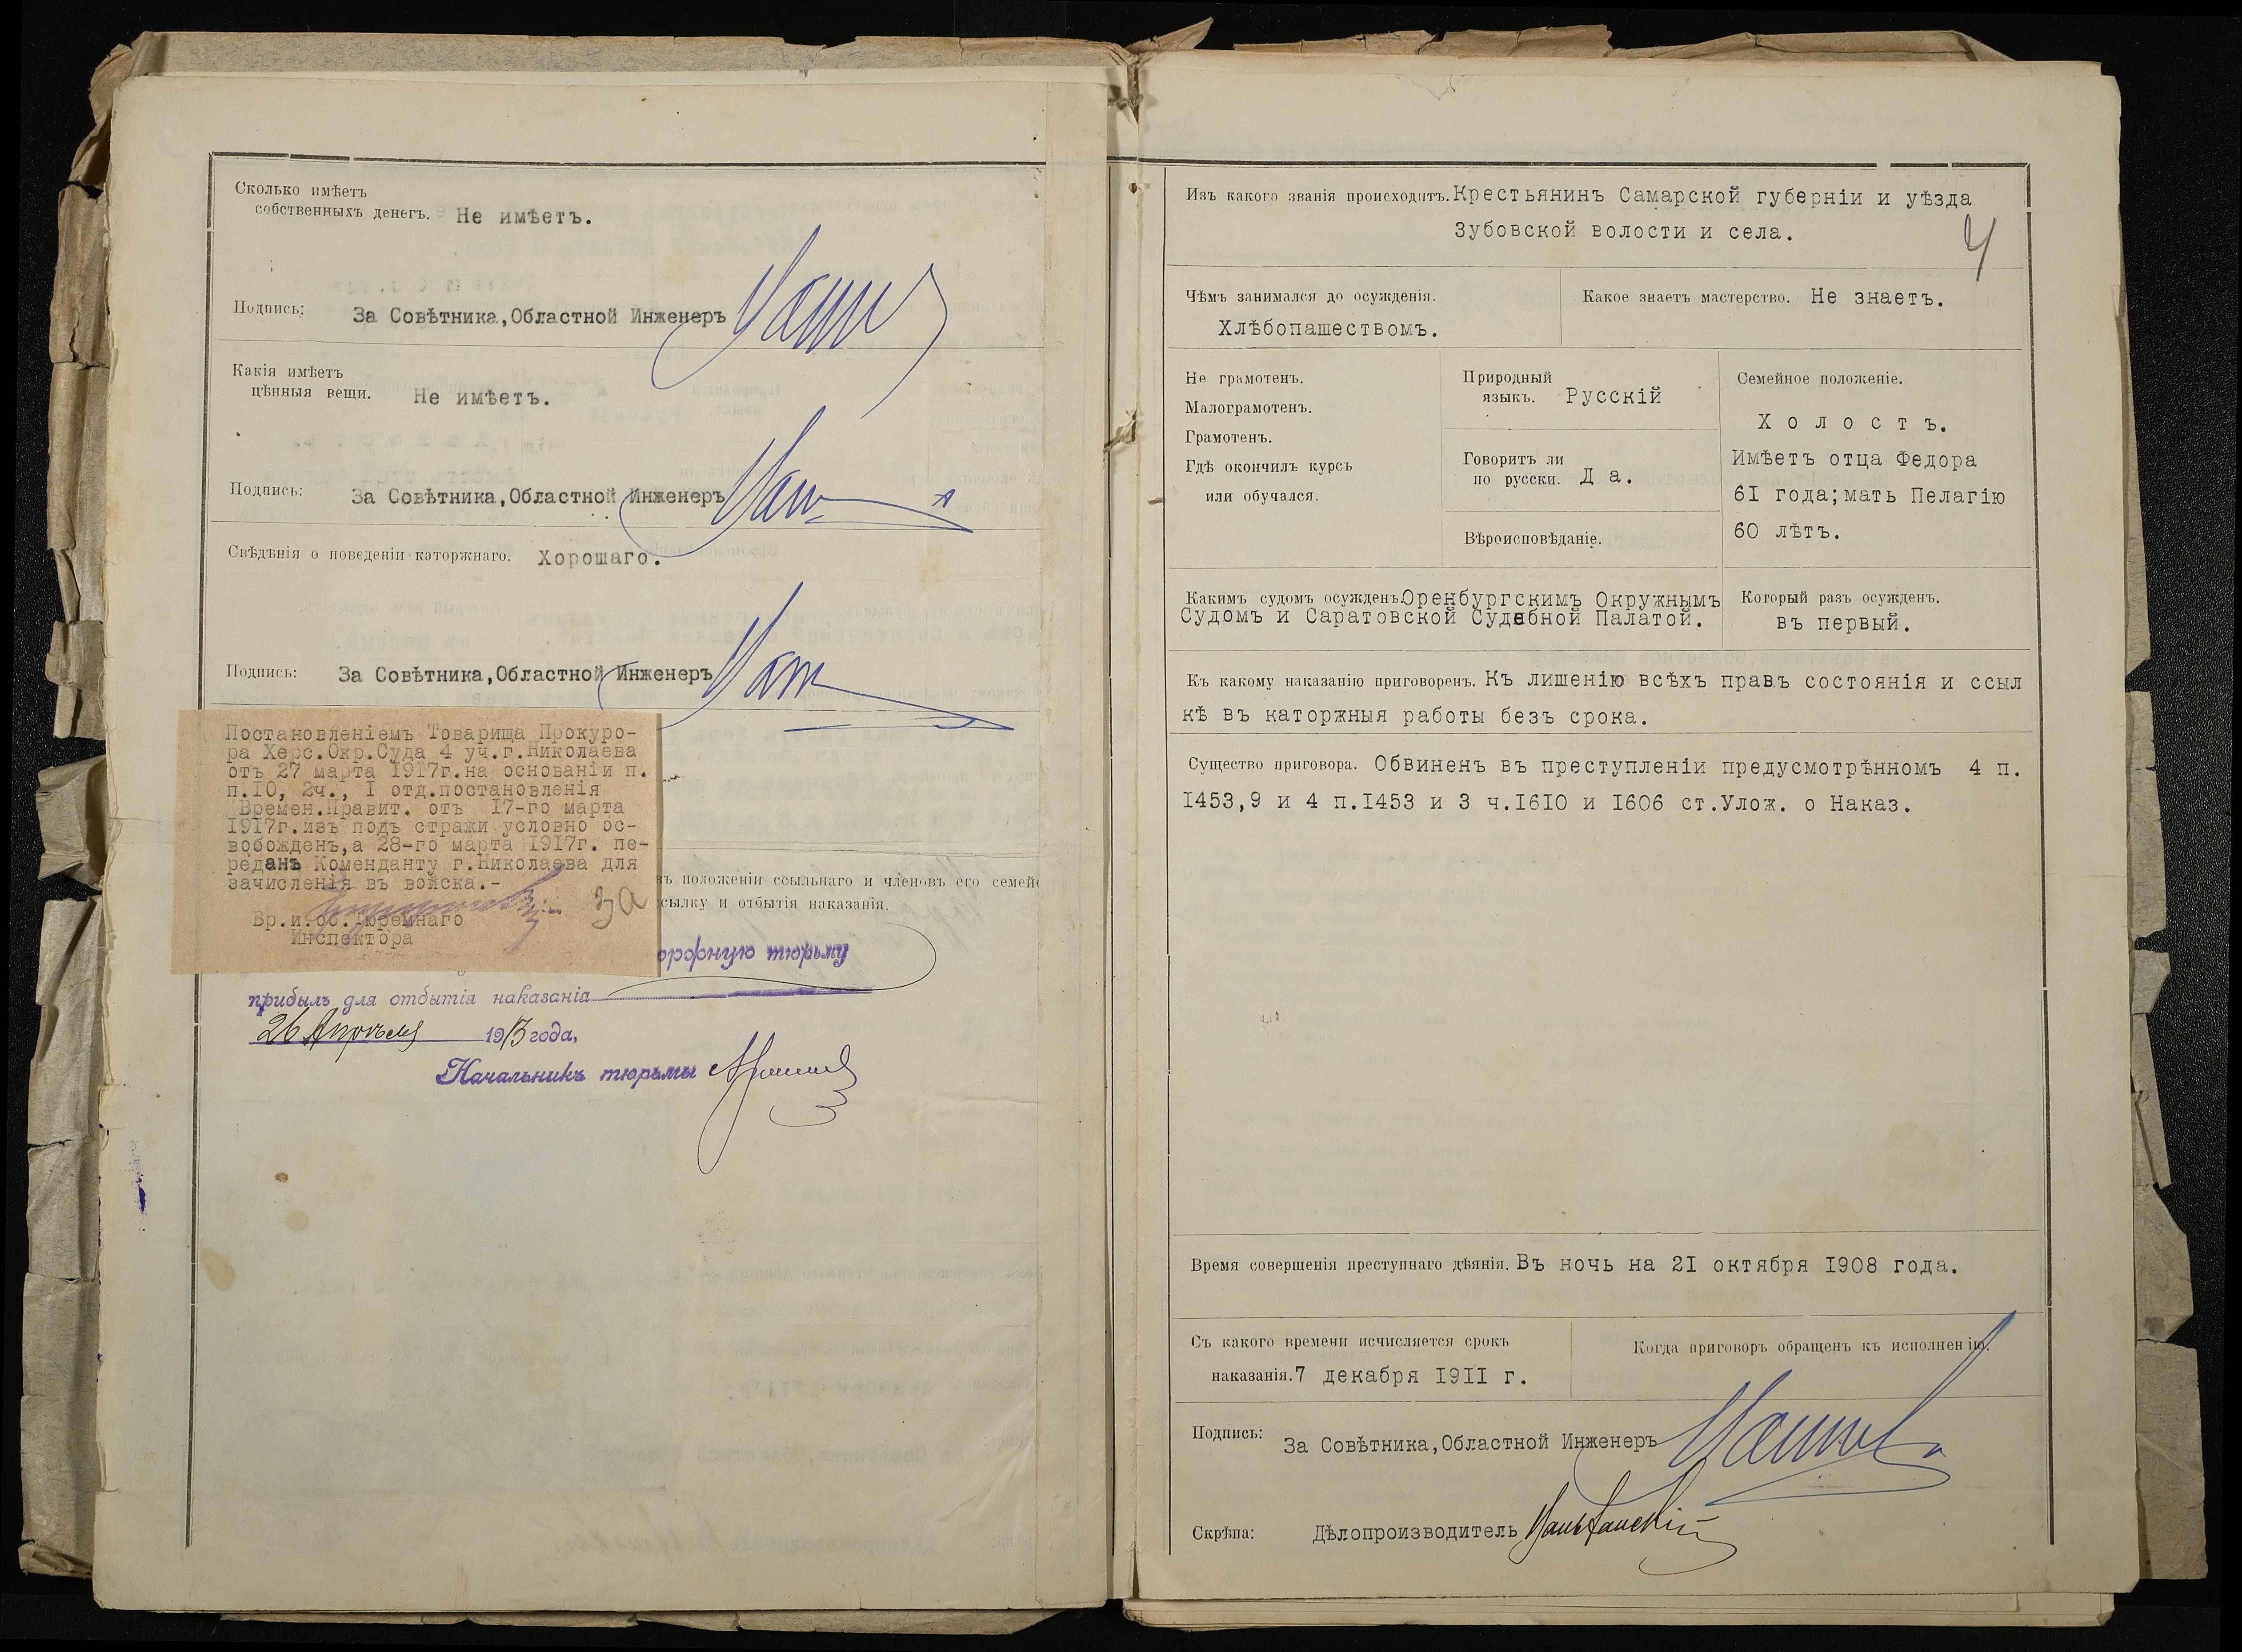 Сколько имѣетъ
собственныхъ денегъ. Не имѣетъ.
Подпись: За Совѣтника,Областной Инженеръ
Какія имѣетъ
цѣнныя вещи. Не имѣетъ.
Подпись: За Совѣтника,Областной Инженеръ
Свѣдѣнія о поведеніи каторжнаго. Хорошаго.
Подпись: За Совѣтника,Областной Инженеръ
Постановленіемъ Товарища Прокуро-
ра Херс.Окр.Суда 4 уч.г.Николаева
отъ 27 марта 1917г.на основаніи п.
п.10, 2ч., I отд.постановленія
Времен.Правит. отъ 17-го марта
1917г.изъ подъ стражи условно ос-
вобожденъ,а 28-го марта 1917г. пе-
реданъ Коменданту г.Николаева для
зачисленія въ войска.-
Вр.и.об.Тюремнаго
Инспектора
3а
въ положеніи ссыльнаго и членовъ его семей
ссылку и отбытія наказанія.
тюрьму
прибылъ для отбытія наказанія
26 Апрѣля 1913 года,
Начальникъ тюрьмы
Изъ какого званія происходитъ. Крестьянинъ Самарской губерніи и уѣзда
Зубовской волости и села.
4
Чѣмъ занимался до осужденія.
Хлѣбопашествомъ.
Какое знаетъ мастерство. Не знаетъ.
Не грамотенъ.
Малограмотенъ.
Грамотенъ.
Гдѣ окончилъ курсъ
или обучался.
Природный
языкъ. Русскій
Говоритъ ли
по русски. Да.
Вѣроисповѣданіе.
Семейное положеніе.
Холостъ.
Имѣетъ отца Федора
61 года;мать Пелагію
60 лѣтъ.
Какимъ судомъ осужденъ. Оренбургскимъ Окружнымъ
Судомъ и Саратовской Судебной Палатой.
Который разъ осужденъ.
въ первый.
Къ какому наказанію приговоренъ. Къ лишенію всѣхъ правъ состоянія и ссыл
кѣ въ каторжныя работы безъ срока.
Существо приговора. Обвиненъ въ преступленіи предусмотрѣнномъ 4 п.
1453,9 и 4 п.1453 и 3 ч.1610 и 1606 ст.Улож. о Наказ.
Время совершенія преступнаго дѣянія. Въ ночь на 21 октября 1908 года.
Съ какого времени исчисляется срокъ
наказанія. 7 декабря 1911 г.
Когда приговоръ обращенъ къ исполненію.
Подпись: За Совѣтника,Областной Инженеръ
Скрѣпа: Дѣлопроизводитель